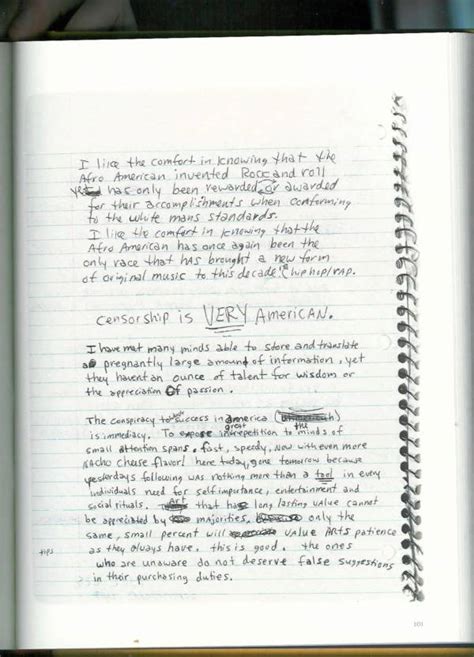 I like the comfort in knowing that the
Afro American invented Rock and roll
yet has only been rewarded or awarded
for their accomplishments when conforming
to the white mans standards.
I like the comfort in knowing that the
Afro American has once again been the
only race that has brought a new form
of original music to this decade. hip hop/rap.
censorship is VERY American.
I have met many minds able to store and translate
a pregnantly large amount of information, yet
they havent an ounce of talent for wisdom or
the appreciation of passion.
The conspiracy toward success in america
is immediacy. To expose in great repetition to the minds of
small attention spans. fast, speedy, Now with even more
NACHO cheese flavor! here today, gone tomorrow because
yesterdays following was nothing more than a tool in every
individuals need for self importance, entertainment and
social rituals. Art that has long lasting value cannot
be appreciated by majorities, only the
same, small percent will value ARts patience
as they always have. this is good. the ones
who are unaware do not deserve false suggestions
in their purchasing duties.
101